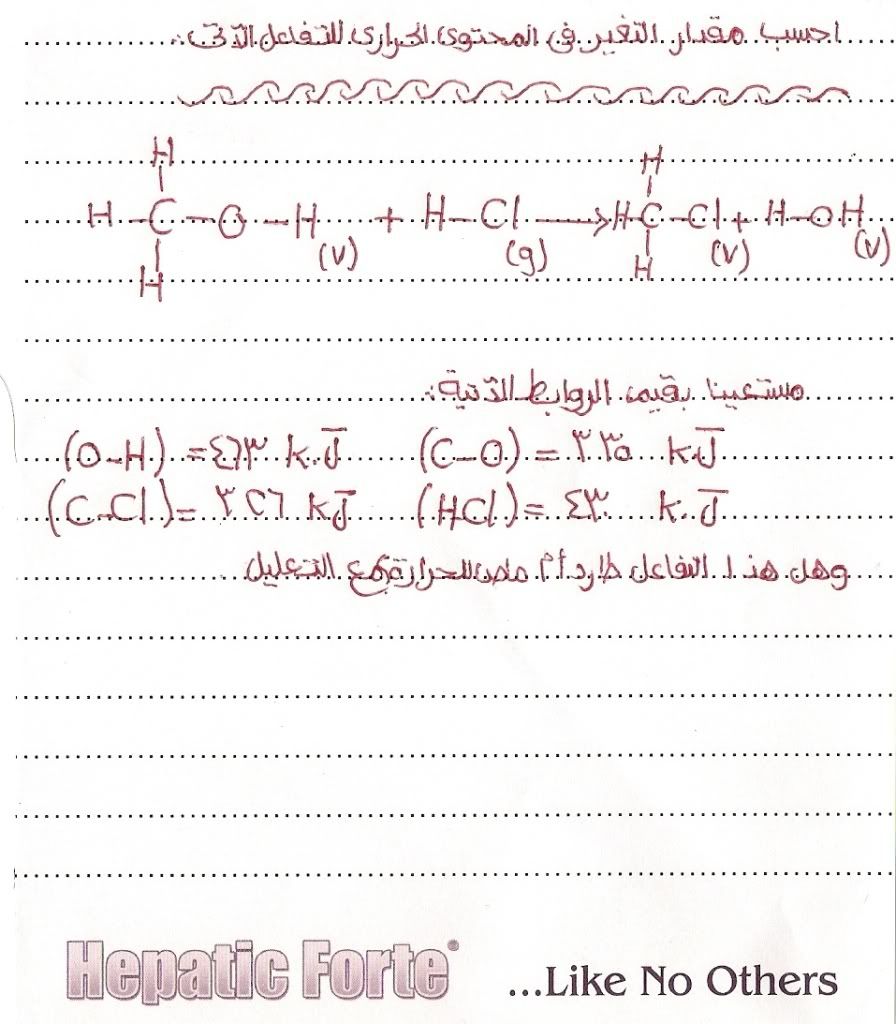 احسب مقدار التغير فى المحتوى الحرارى للتفاعل الآتى :
H H
H – C – O – H (v) + H – Cl (g) → H C – Cl (v) + H – O H (v)
H H
مستعينا بقيم الروابط الآتية :
(O–H) = ٤٦٣ k.J (C–O) = ٣٣٥ k.J
(C–Cl) = ٣٢٦ kJ (HCl) = ٤٣٠ k.J
وهل هذا التفاعل طارد أم ماص للحرارة مع التعليل
Hepatic Forte® ...Like No Others